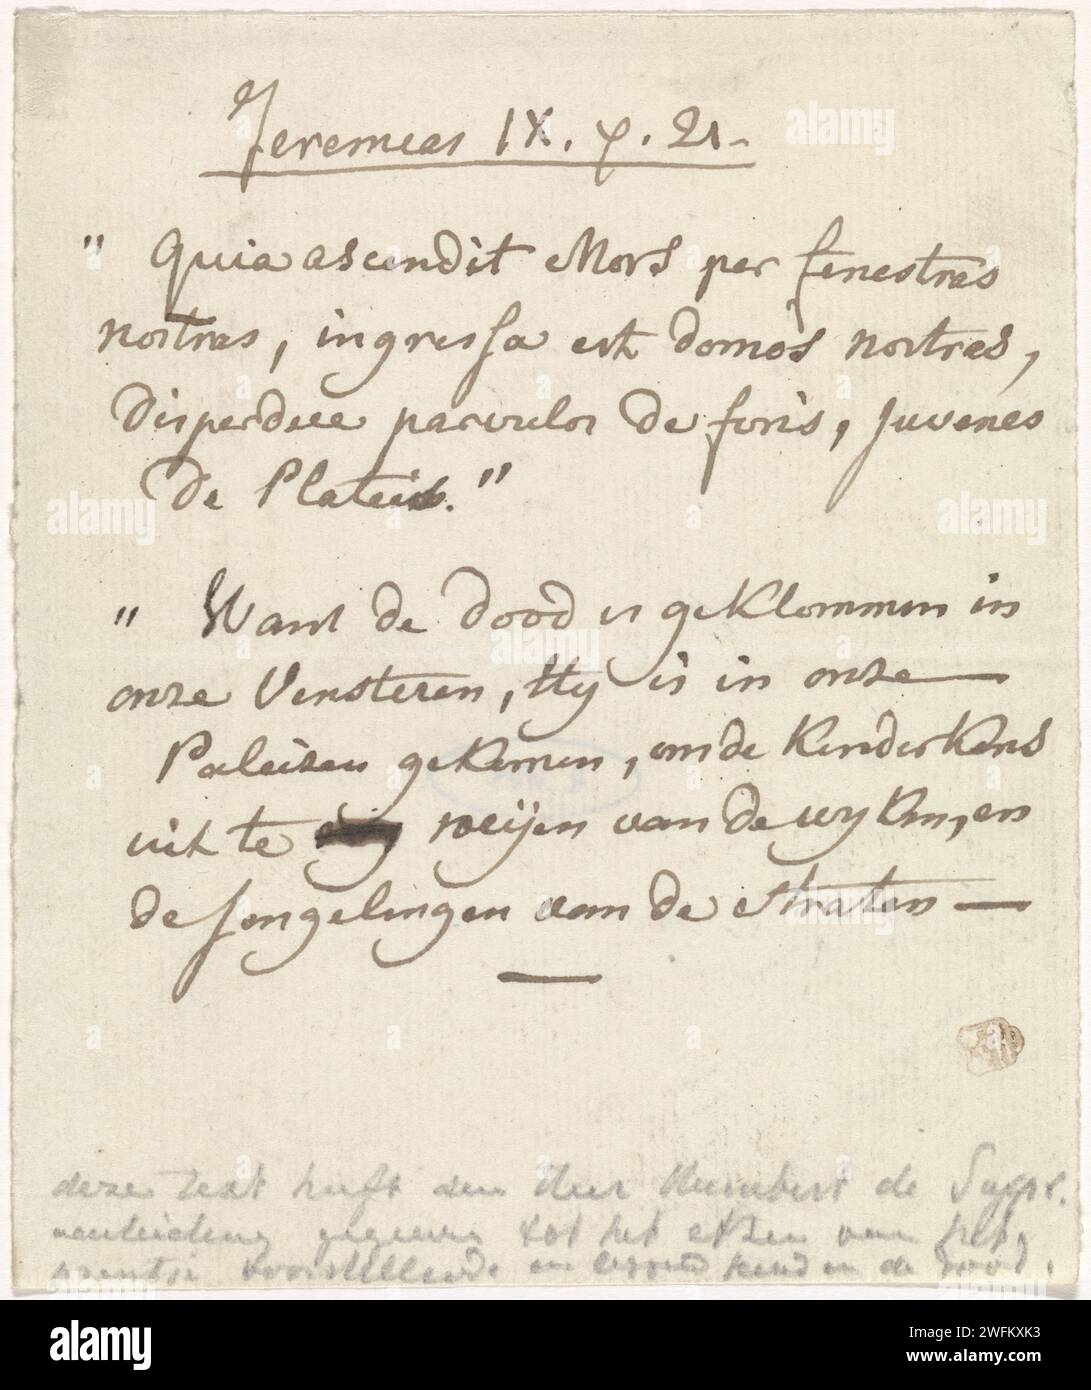 Jeremeas IX. y. 21.
" Quia ascendit Mors per fenestras
nostras, ingressa est domos nostras,
Disperdere parvulos de foris, Juvenes
De Plateis."
" Want de dood is geklommen in
onze Vensteren, Hy is in onze
Paleizen gekomen, om de Kinderkens
uit te roeijen van de wyken, en
de Jongelingen van de Straten
deze text heeft den Heer Humbert de Super.
aanleiding gegeven tot het etsen van het
prentje voorstellende en kind en de dood.
alamy
Image ID: 2WFKXK3
www.alamy.com